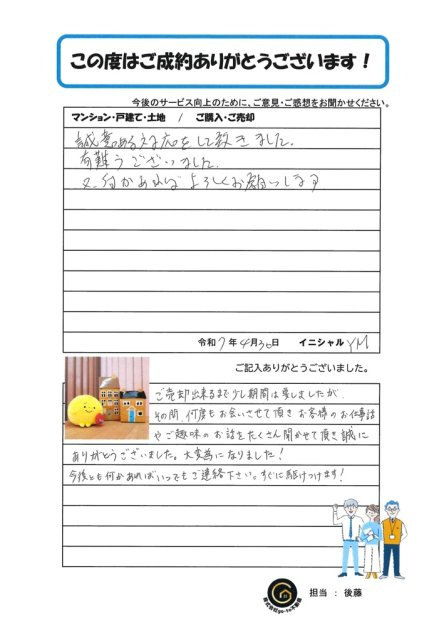 この度はご成約ありがとうございます！
今後のサービス向上のために、ご意見・ご感想をお聞かせください。
マンション・戸建て・土地　/　ご購入・ご売却
誠意ある対応をして頂きました。
有難うございました。
又、何かあればよろしくお願いします
令和7年4月30日　イニシャル YM
ご記入ありがとうございました。
ご売却出来るまで少し期間は要しましたが、
その間、何度もお会いさせて頂き お客様のお仕事話
やご趣味のお話をたくさん聞かせて頂き誠に
ありがとうございました。大変為になりました！
今後とも何かあればいつでもご連絡下さい。すぐに駆けつけます！
株式会社go-to不動産
担当 ： 後藤